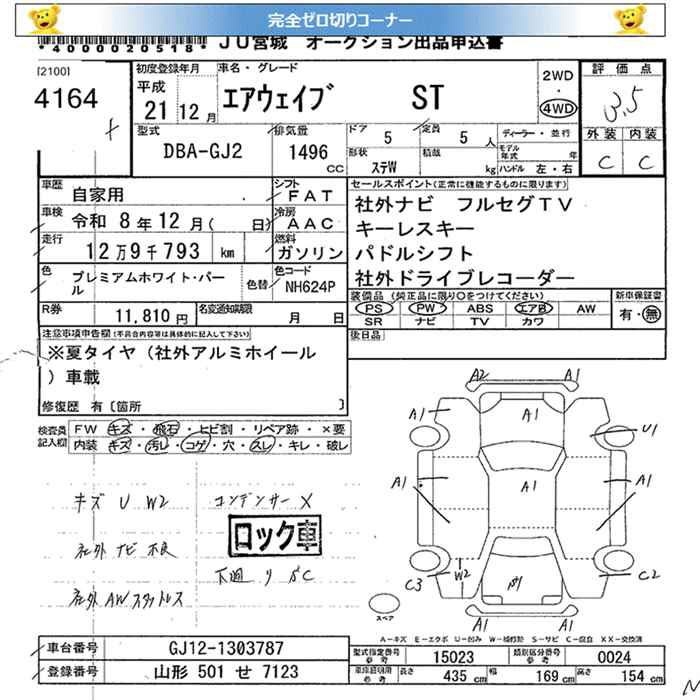 完全ゼロ切りコーナー
*4000020518* JU宮城 オークション出品申込書
[2100]
4164
初度登録年月
平成
21 12 月
車名・グレード
エアウェイブ ST
2WD
・
4WD
評価点
3.5
外装 内装
C C
型式
DBA-GJ2
排気量
1496
CC
ドア
5
定員
5 人
形状
ステW
積載
kg
ディーラー・並行
モデル年式 年
ハンドル 左・右
車歴
自家用
シフト
FAT
車検
令和 8 年 12 月( 日)
冷房
AAC
走行
12 万 9 千 793 km
燃料
ガソリン
色
プレミアムホワイト・パール
色替
色コード
NH624P
R券
11,810 円
名変通知期限
月 日
セールスポイント(正常に機能するものに限ります)
社外ナビ フルセグTV
キーレスキー
パドルシフト
社外ドライブレコーダー
装備品(純正品に限り○をつけてください)
PS PW ABS エアB AW
SR ナビ TV カワ
新車保証書
有・無
後日品
注意事項申告欄(不具合内容等は具体的に記入して下さい)
※夏タイヤ(社外アルミホイール
)車載
修復歴 有〔箇所 〕
検査員記入欄
FW キズ・飛石・ヒビ割・リペア跡・×要
内装 キズ・汚レ・コゲ・穴・スレ・キレ・破レ
キズ U W2
コンデンサー ×
社外 ナビ 不良
ロック車
下廻り
社外AWスタットレス
A2 A1
A1 A1 U1
A1 A1 A1
C3 W2 C2
A1 A1
スペア
A-キズ E-エクボ U-凹み W-補修跡 S-サビ C-腐食 XX-交換済
車台番号
GJ12-1303787
登録番号
山形 501 せ 7123
型式指定番号
参考
15023
類別区分番号
参考
0024
車体証明用
参考
長さ 435 cm
幅 169 cm
高さ 154 cm